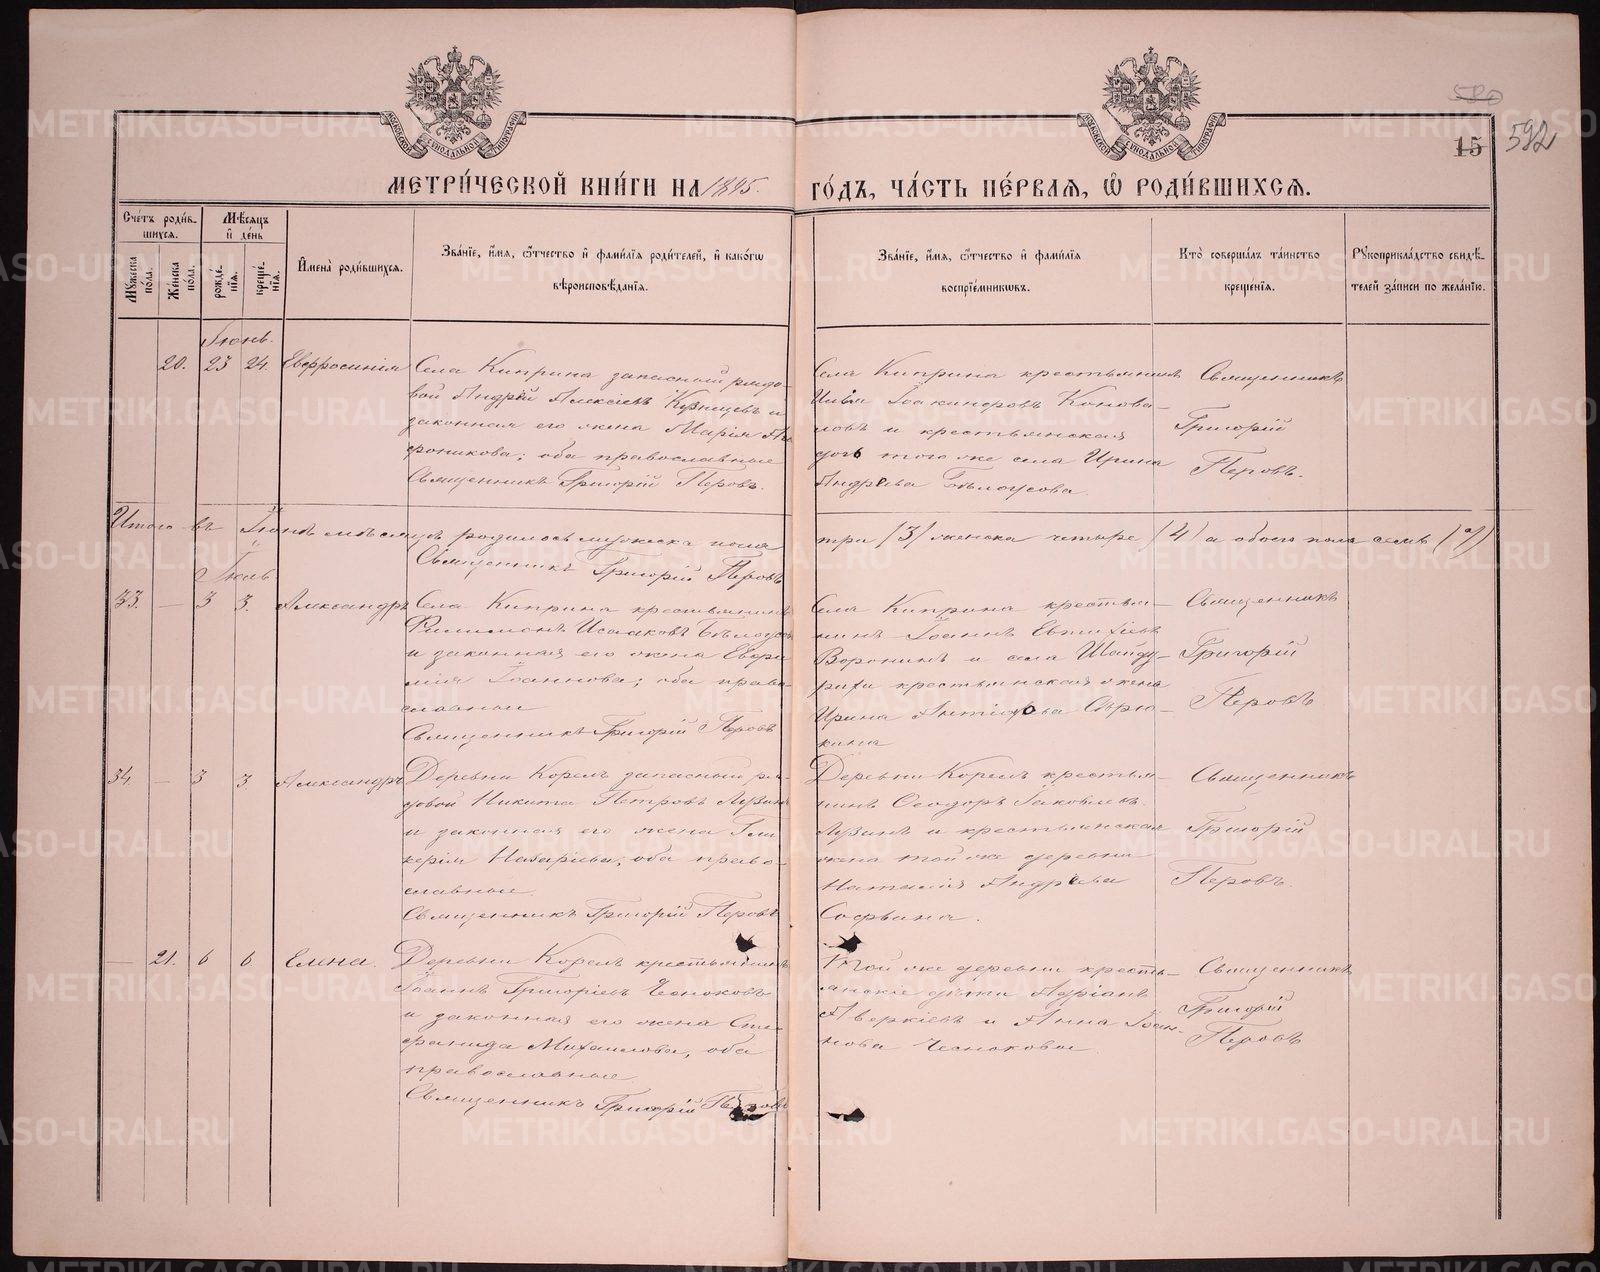 580
15 592
МЕТРИ́ЧЕСКОЙ КНИ́ГИ НА 1895. ГО́ДЪ, ЧА́СТЬ ПЕ́РВАЯ, Ѽ РОДИ́ВШИХСЯ.
Сче́тъ роди́вшихся.
Мѣ́сяцъ и҆ де́нь
Мꙋ́жеска по́ла.
Же́нска по́ла.
рожде́нїя.
креще́нїя.
И҆мена̀ роди́вшихся.
Зва́нїе, и҆́мя, ѻ҆́тчество и҆ фами́лїя роди́телей, и҆ како́гѡ
вѣроисповѣ́данїя.
Зва́нїе, и҆́мя, ѻ҆́тчество и҆ фами́лїя
воспрїе́мникѡвъ.
Кто̀ соверша́лъ та́инство
креще́нїя.
Рꙋкоприкла́дство свидѣ́телей за́писи по жела́нїю.
Іюнь.
20. 23 24. Евфросинія
Села Киприна запасный рядо-
вой Андрей Алексіевъ Кузнецовъ и
законная его жена Марія
оба православные
Священникъ Григорій Перовъ.
Села Киприна крестьянинъ
Илія Іоакимовъ Конова-
ловъ и крестьянская
дочь того же села Ирина
Андреева Бѣлоусова.
Священникъ
Григорій
Перовъ.
Итого въ Іюнѣ мѣсяцѣ родилось мужеска пола три (3) женска четыре (4) а обоего пола семь (7)
Священникъ Григорій Перовъ
Іюль
33. — 3 3. Александръ
Села Киприна крестьянинъ
Филимонъ Исааковъ Бѣлоусовъ
и законная его жена Евфи
мія Іоаннова; оба право-
славные
Священникъ Григорій Перовъ
Села Киприна крестья-
нинъ Іоаннъ Евтихіевъ
Воронинъ и села Шайду-
рихи крестьянская жена
Ирина Сырю-
кина
Священникъ
Григорій
Перовъ
34. — 3 3. Александръ
Деревни Корелъ запасный ря-
довой Никита Петровъ Лузинъ
и законная его жена Гли
керія Назаріева, оба право-
славные
Священникъ Григорій Перовъ
Деревни Корелъ крестья-
нинъ Ѳеодоръ Іаковлевъ
Лузинъ и крестьянская
жена той же деревни
Наталія Андреева
Софьина.
Священникъ
Григорій
Перовъ.
— 21. 6 6 Елена.
Деревни Корелъ крестьянинъ
Іоаннъ Григоріевъ Чесноковъ
и законная его жена Сте-
фанида Михаилова, оба
православные
Священникъ Григорій Перовъ
Той же деревни кресть-
янскіе дѣти Адріанъ
Аверкіевъ и Анна Іоан-
нова Чесноковы
Священникъ
Григорій
Перовъ
METRIKI.GASO-URAL.RU